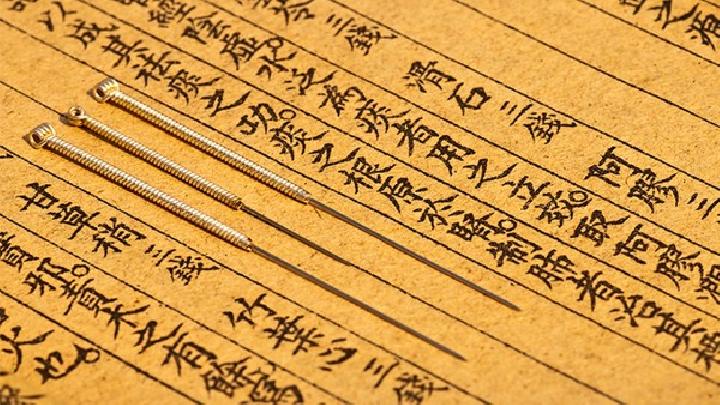 苓三錢 滑石三錢 阿膠三
經陰虛水泛為痰者用之立效。取阿膠
以成其祛痰之功。痰之根原於腎。制肺者治其
甘草稍三錢 竹葉心三錢
邪。責木之有餘
火也。